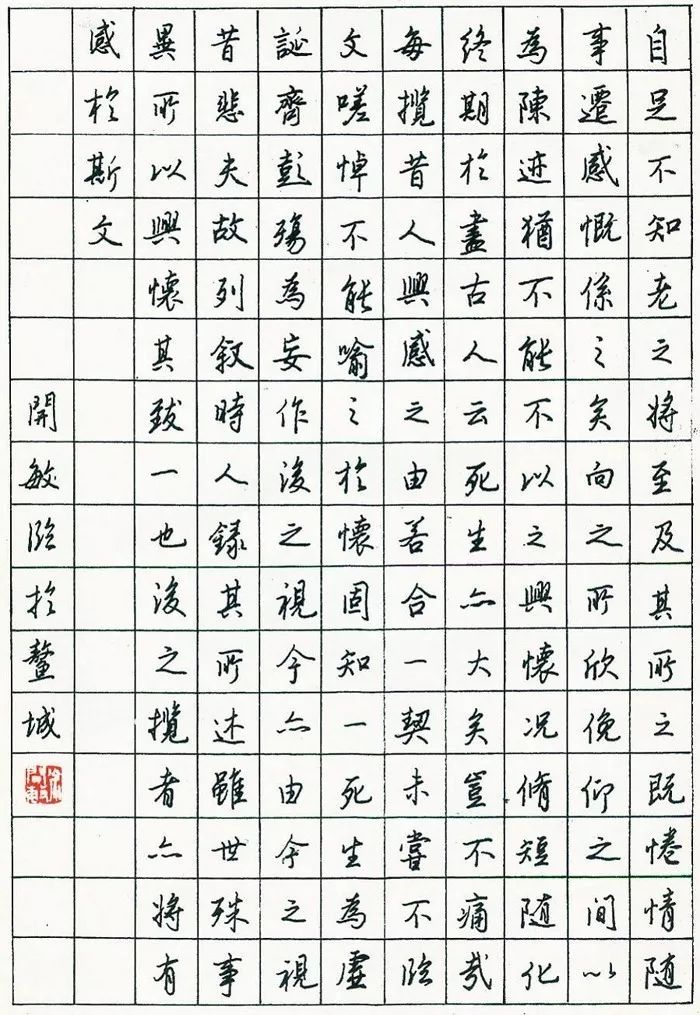 自足不知老之將至及其所之既惓情随
事遷感慨係之矣向之所欣俛仰之間以
為陳迹猶不能不以之興懷况脩短随化
終期於盡古人云死生亦大矣豈不痛哉
每攬昔人興感之由若合一契未嘗不臨
文嗟悼不能喻之於懷固知一死生為虛
誕齊彭殤為妄作後之視今亦由今之視
昔悲夫故列叙時人錄其所述雖世殊事
異所以興懷其致一也後之攬者亦將有
感於斯文
開敏臨於鰲城